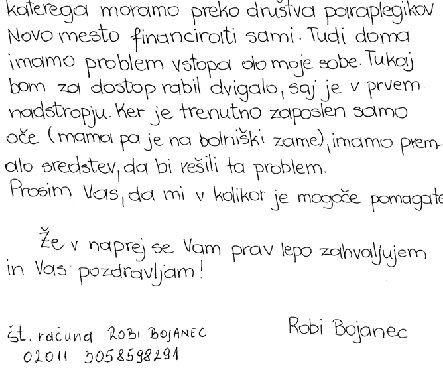 katerega moramo preko društva paraplegikov
Novo mesto financirati sami. Tudi doma
imamo problem vstopa do moje sobe. Tukaj
bom za dostop rabil dvigalo, saj je v prvem
nadstropju. Ker je trenutno zaposlen samo
oče (mama pa je na bolniški zame), imamo prem-
alo sredstev, da bi rešili ta problem.
Prosim Vas, da mi v kolikor je mogoče pomagate
Že v naprej se Vam prav lepo zahvaljujem
in Vas pozdravljam!
Robi Bojanec
št. računa ROBI BOJANEC
02011 3058598291